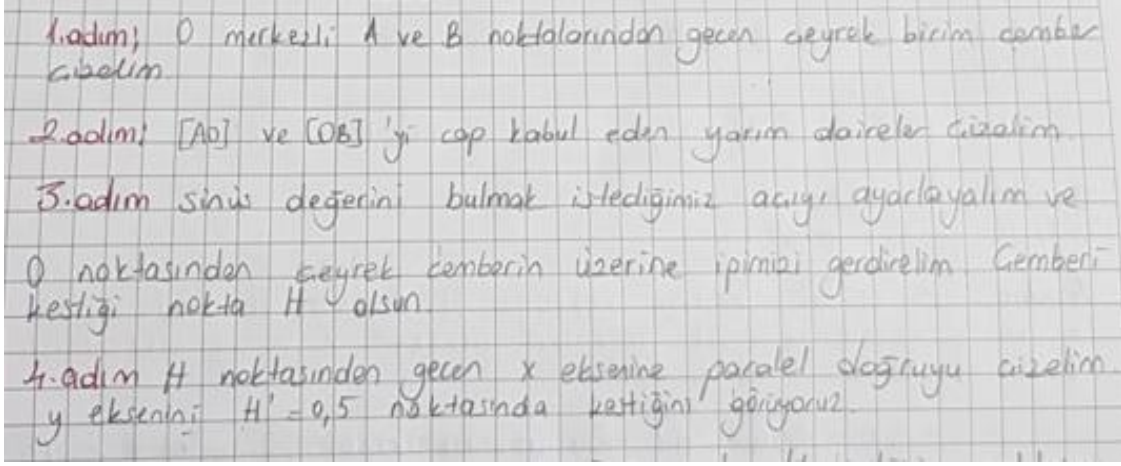 1.adım; O merkezli A ve B noktalarından geçen çeyrek birim çember
çizelim
2.adım; [AO] ve [OB] 'yi çap kabul eden yarım daireler çizelim.
3.adım sinüs değerini bulmak istediğimiz açıyı ayarlayalım ve
O noktasından çeyrek çemberin üzerine ipimizi gerdirelim Çemberi
kestiği nokta H olsun.
4.adım H noktasından geçen x eksenine paralel doğruyu çizelim.
y eksenini H' = 0,5 noktasında kestiğini görüyoruz.